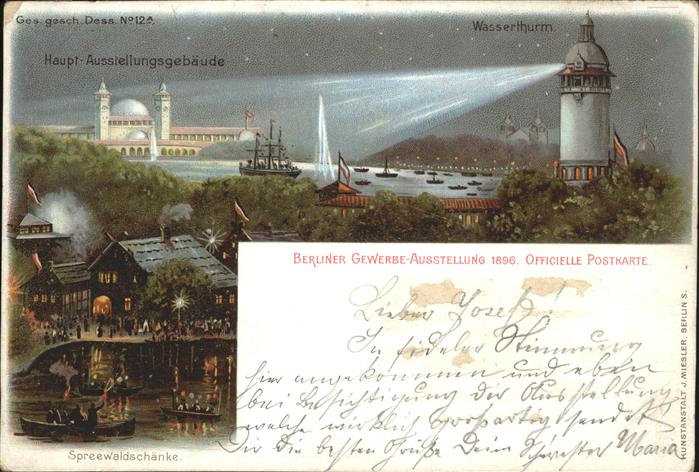 Ges. gesch. Dess. No 124.
Wasserthurm.
Haupt-Ausstellungsgebäude
BERLINER GEWERBE-AUSSTELLUNG 1896. OFFICIELLE POSTKARTE.
Lieber Josef!
In fideler Stimmung
hier angekommen und eben
bei Besichtigung der Ausstellung
welche wirklich großartig sendet
Dir die besten Grüße Deine Schwester Maria
KUNSTANSTALT J. MIESLER, BERLIN S.
Spreewaldschänke.